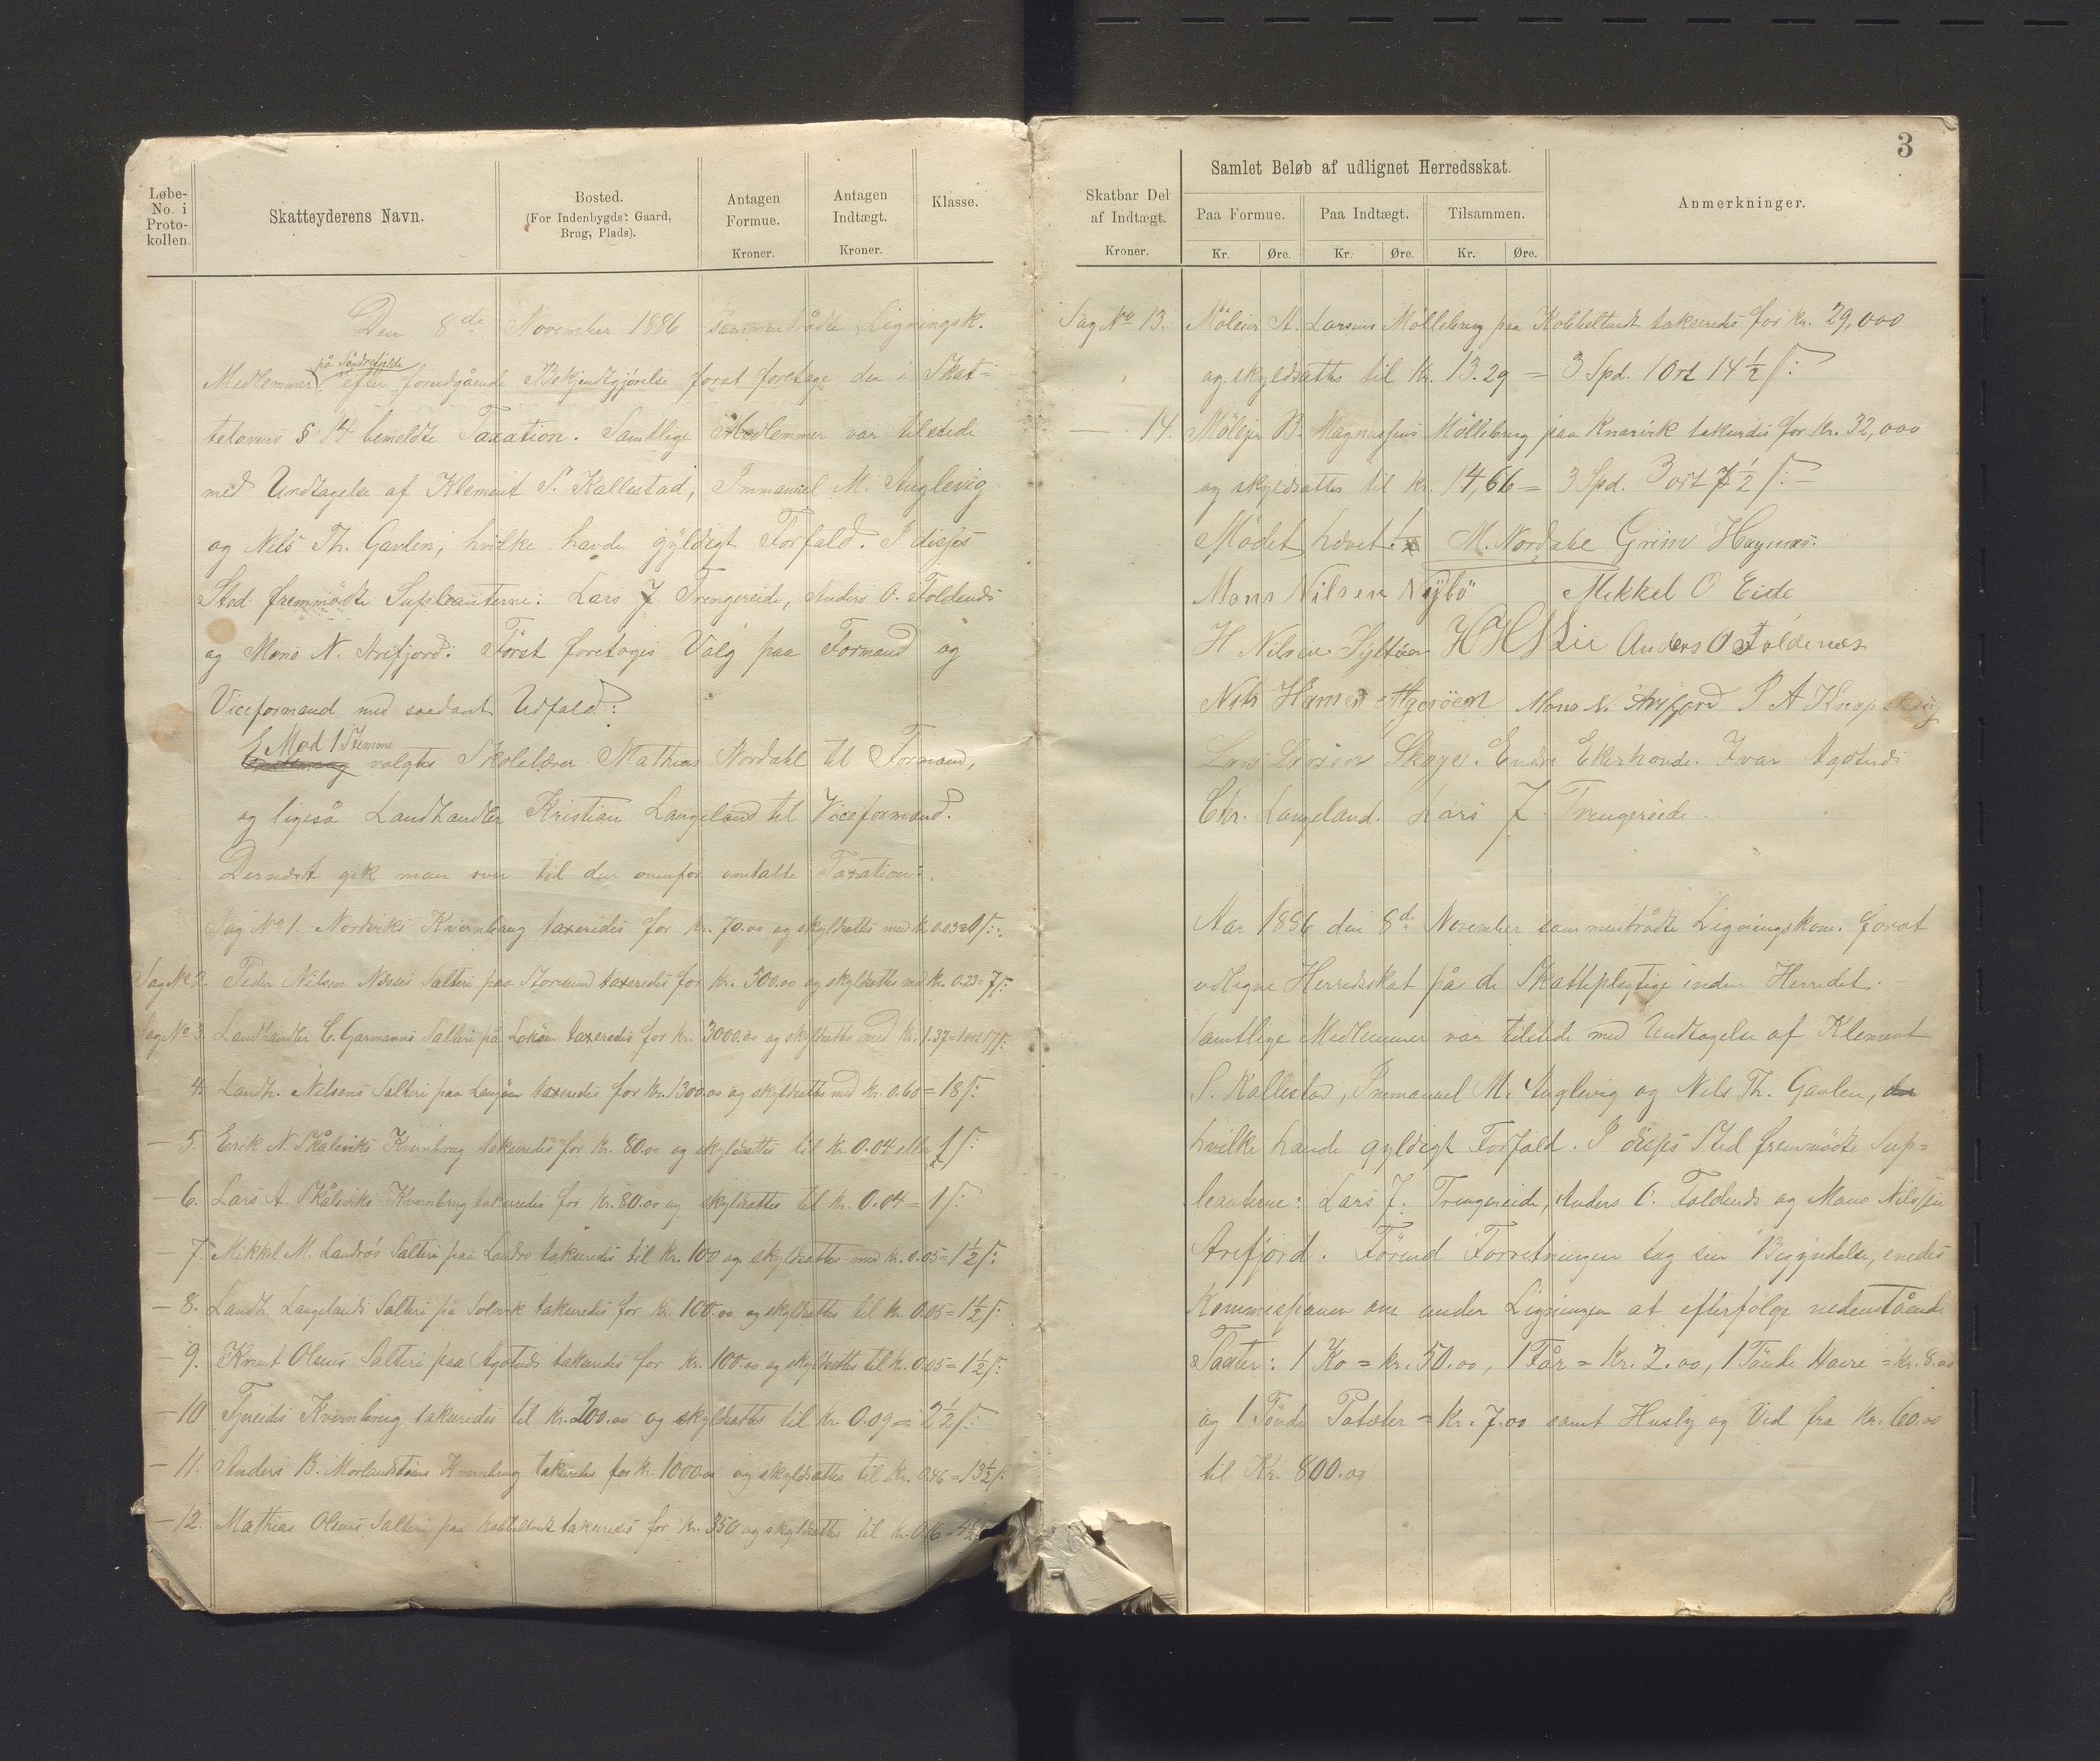 Løbe-
No. i
Proto-
kollen.
Skatteyderens Navn.
Bosted.
(For Indenbygds: Gaard,
Brug, Plads).
Antagen
Formue.
Kroner.
Antagen
Indtægt.
Kroner.
Klasse.
Den 8de November 1886 sammentraadte Ligningsk.
på Söndrefjelde
Medlemmer efter forudgående Bekjendtgjörelse forat foretage den i Skat-
telovens § 14 bemeldte Taxation. Samtlige Medlemmer var tilstede
med Undtagelse af Klement S. Kallestad, Immanuel M. Anglevig
og Nils Th. Gavlen, hvilke havde gyldigt Forfald. I disses
Sted fremmödte Supleanterne: Lars J Trengereide, Anders O. Foldends
og Mons N. Arefjord. Först foretoges Valg paa Formand og
Viceformand med saadant Udfald:
Mod 1 Stemme
valgtes Skolelærer Mathias Nordahl til Formand,
og ligeså Landhandler Kristian Langeland til Viceformand.
Dernæst gik man over til den ovenfor omtalte Taxation:
Sag No 1. Nordviks Kvernbrug taxeredes for kr. 70.00 og skyldsattes med kr. 0.03=1 ß:
Sag No 2. Peder Nilsen Næsses Salteri paa Storsund taxeredes for kr. 500.00 og skyldsattes med kr. 0.23=7 ß:
Sag No 3. Landhandler C. Garmanns Salteri på Loköen taxeredes for kr. 3000.00 og skyldsattes med kr. 1.37=1 ort 17 ß:
4. Landh. Nilsens Salteri paa Langöen taxeredes for kr. 1300.00 og skyldsattes med kr. 0.60=18 ß:
— 5. Erik N. Skåleviks Kvernbrug takseredes for kr. 80.00 og skyldsattes til kr. 0.04 eller 1 ß:
— 6. Lars A. Skåleviks Kvernbrug takseredes for kr. 80.00 og skyldsattes til kr. 0.04=1 ß:
— 7. Mikkel M. Landrös Salteri paa Landro takseredes til kr. 100 og skyldsattes med kr. 0.05=1½ ß:
— 8. Landh. Langelands Salteri på Solsvik takseredes for kr. 100.00 og skyldsattes til kr. 0.05=1½ ß:
— 9. Knut Olsens Salteri paa Agotnds takseredes for kr. 100.00 og skyldsattes til kr. 0.05=1½ ß:
— 10 Fjereides Kvernbrug takseredes til kr. 200.00 og skyldsattes til kr 0.09=2½ ß:
— 11. Anders B. Morlandstöens Kvernbrug takseredes for kr. 1000.00 og skyldsattes til kr. 0.46=13½ ß.
— 12. Mathias Olsens Salteri paa Kobbeltvedt takseredes for kr. 350 og skyldsattes til kr. 0.16=4½
3
Skatbar Del
af Indtægt.
Kroner.
Samlet Beløb af udlignet Herredsskat.
Paa Formue.
Paa Indtægt.
Tilsammen.
Kr. Øre. Kr. Øre. Kr. Øre.
Anmerkninger.
Sag No 13. Möleier A. Larsens Möllebrug paa Kobbeltvedt takseredes for kr. 29,000
og skyldsattes til kr. 13.29 = 3 Spd. 1 Ort 14½ ß:
— 14. Möleier B. Magnussens Möllebrug paa Knarvik takseredes for kr. 32,000
og skyldsattes til kr. 14,66 = 3 Spd. 3 ort 7½ ß: –
Mödet hævet. M. Nordahl Grim Hagenæs.
Mons Nilsen Nybö Mikkel O Eide
H Nilsen Syltöen H H Lie Anders O Foldenæs
Nils Hansen Algeröen Mons N. Arefjord P A Knapskog
Lars Larsen Skoge. Endre Ekerhovde. Ivar Agotnds
Chr. Langeland. Lars J. Trengereide.
Aar 1886 den 8de November sammentrådte Ligningskom. forat
udligne Herredsskat på de Skattepligtige inden Herredet. –
Samtlige Medlemmer var tilstede med Undtagelse af Klement
S. Kallestad, Immanuel M. Anglevig og Nils Th. Gavlen, der
hvilke havde gyldigt Forfald. I disses Sted fremmödte Sup-
leanterne: Lars J. Trengereide, Anders O. Foldends og Mons Nilssen
Arefjord. Förend Forretningen tog sin Begyndelse, enedes
Kommissionen om under Ligningen at efterfölge nedenstående
Taxter: 1 Ko = kr. 50.00, 1 Får = Kr. 2.00, 1 Tönde Havre = kr. 8.00
og 1 Tönde Poteter = kr. 7.00 samt Husly og Ved fra kr. 60.00
til Kr. 800.00